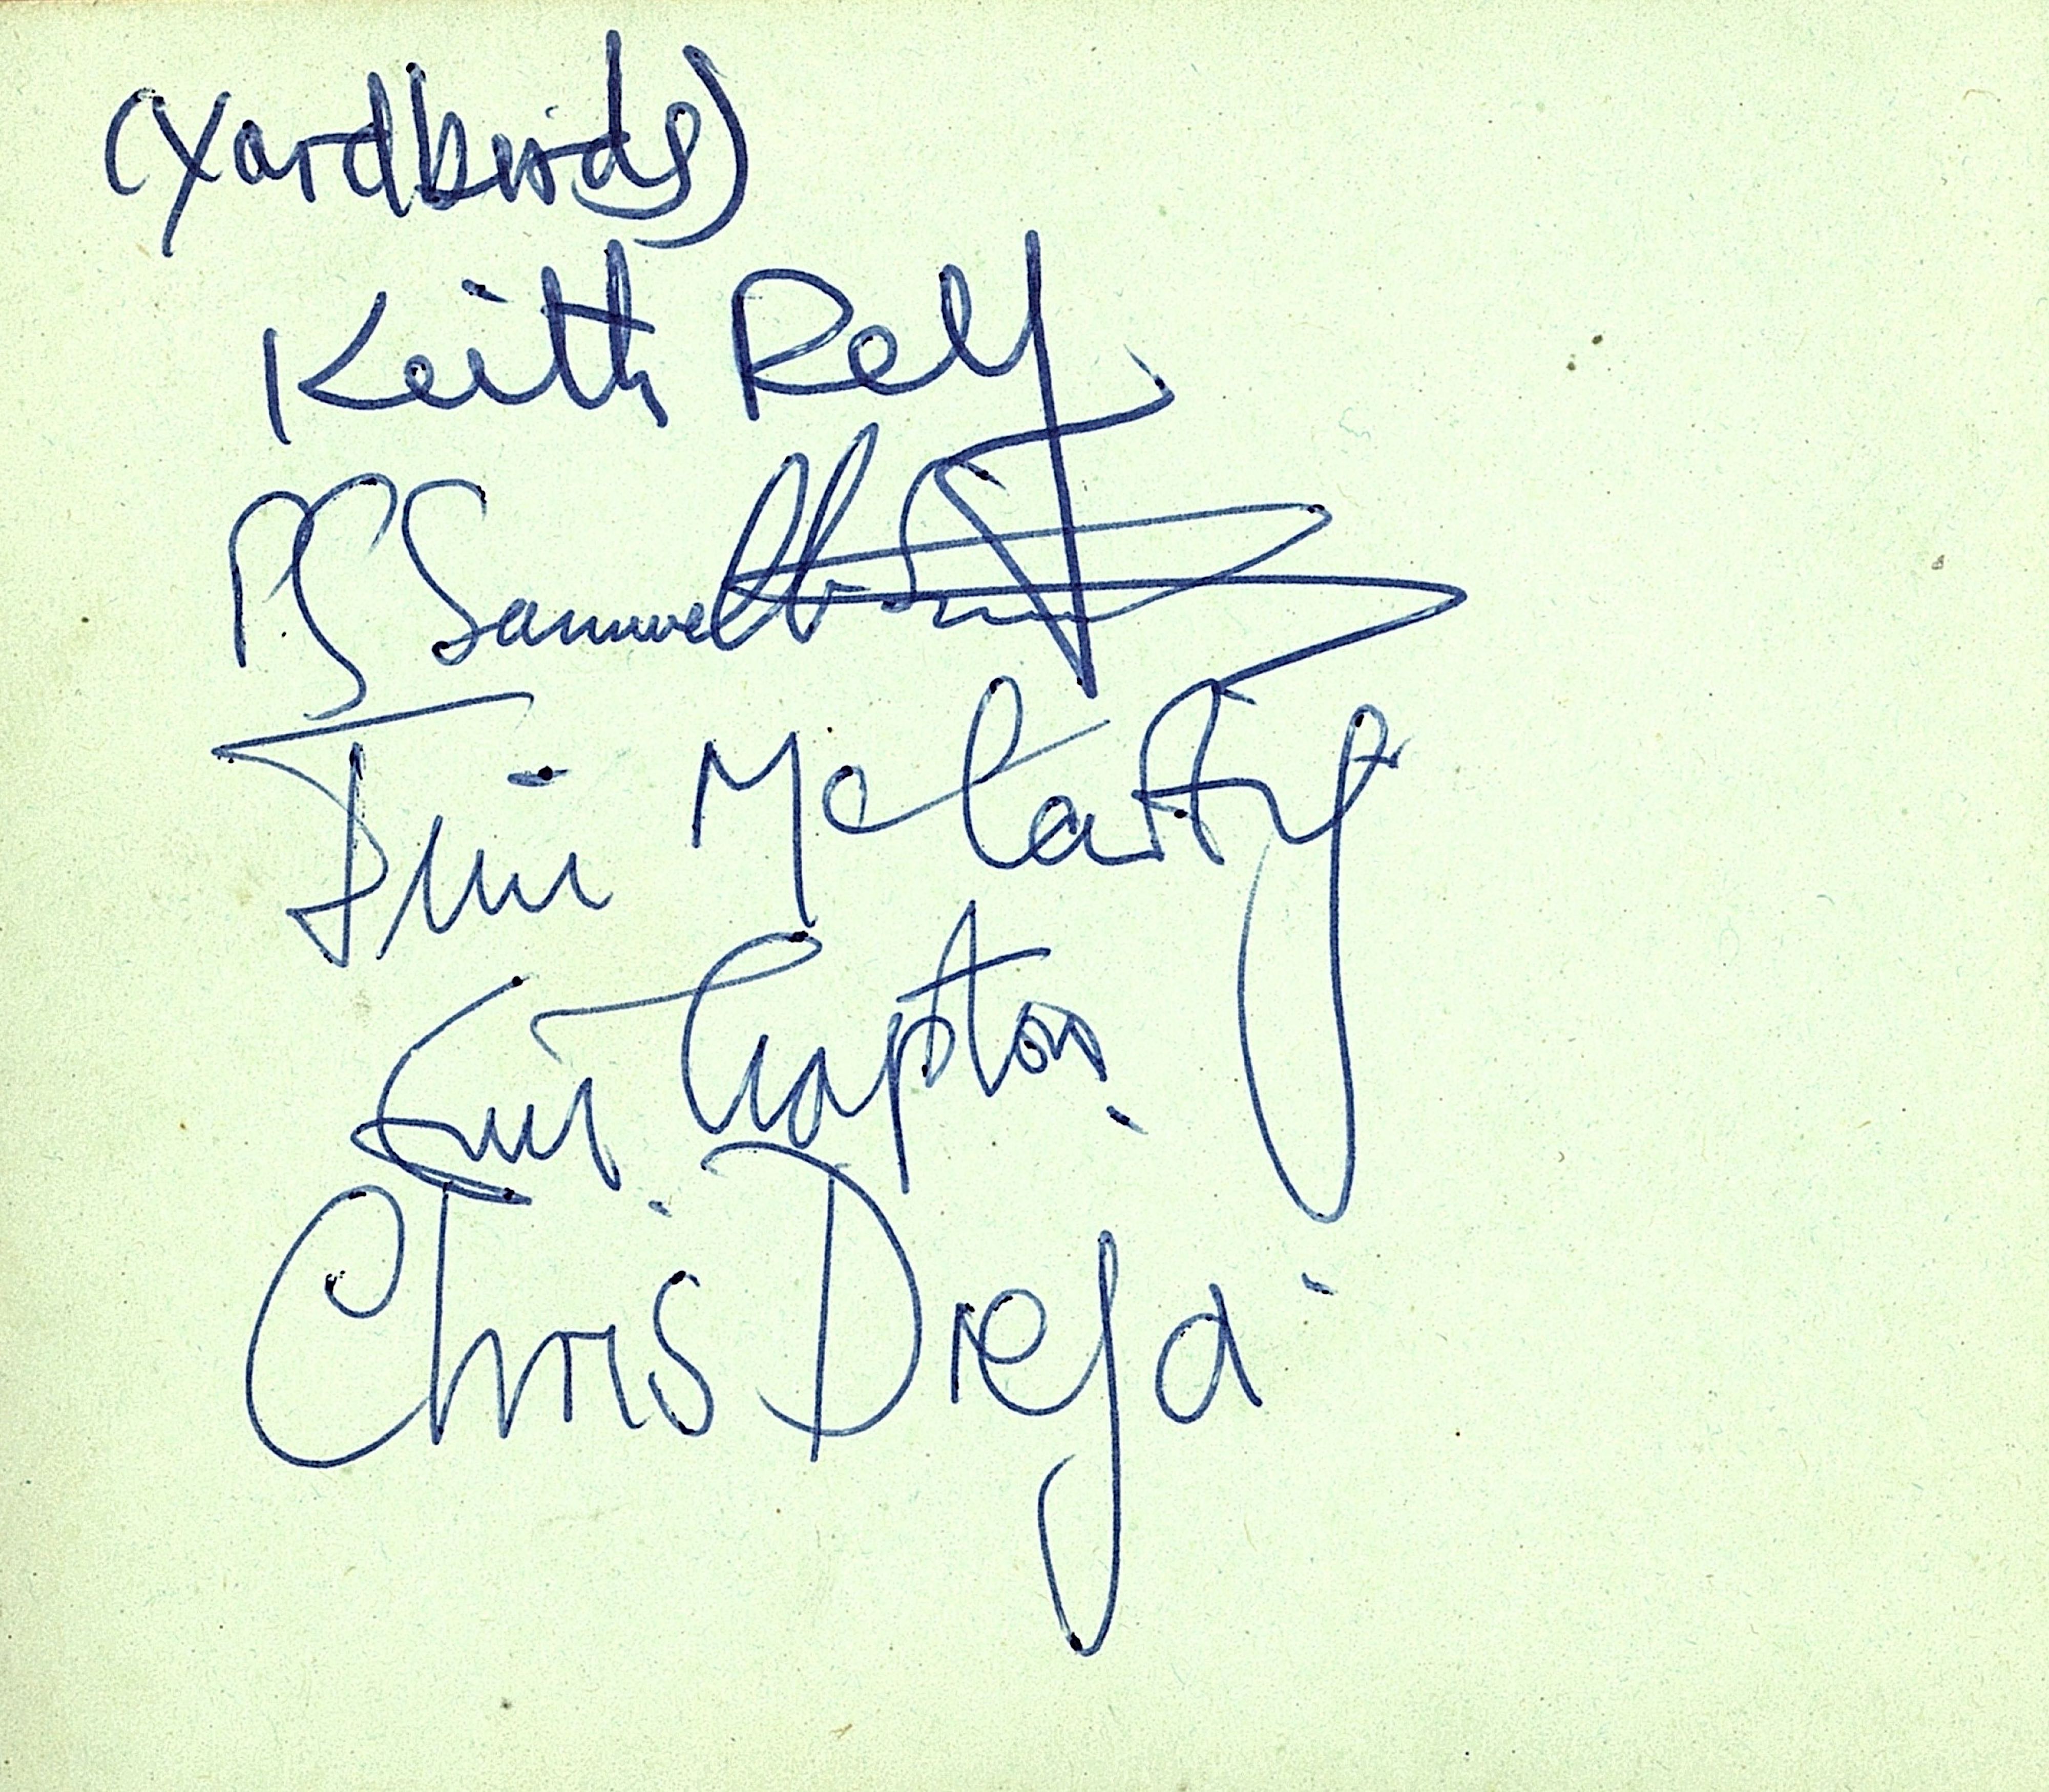 (Yardbirds)
Keith Relf
P.S. Samwell-Smith
Jim McCarty
Eric Clapton.
Chris Dreja